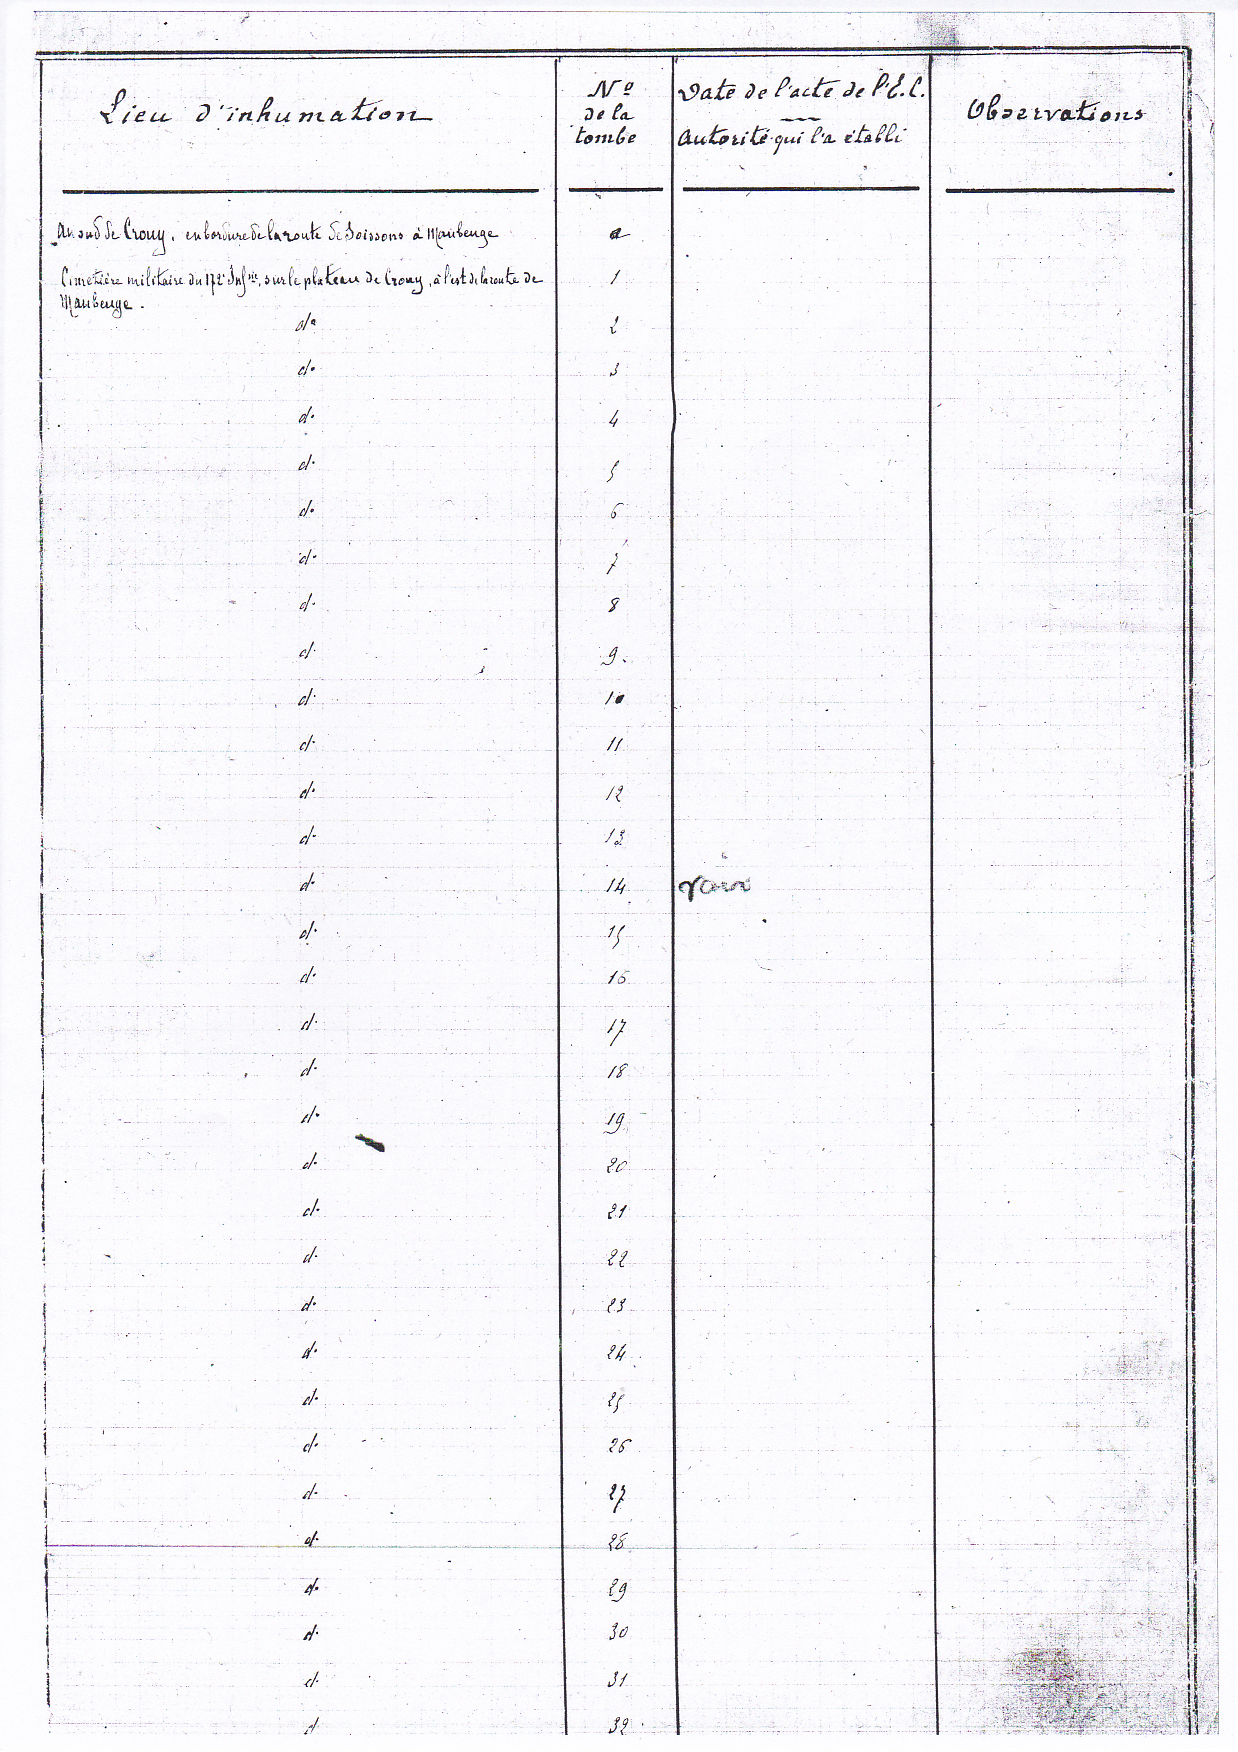 Lieu d'inhumation
N° de la tombe
Date de l'acte de l'E.C.
Autorité qui l'a établi
Observations
Au sud de Crouy, en bordure de la route de Soissons à Maubeuge
Cimetière militaire du 172e Inf^rie, sur le plateau de Crouy, à l'est de la route de 1
Maubeuge.
d° 2
d° 3
d° 4
d° 5
d° 6
d° 7
d° 8
d° 9
d° 10
d° 11
d° 12
d° 13
d° 14
d° 15
d° 16
d° 17
d° 18
d° 19
d° 20
d° 21
d° 22
d° 23
d° 24
d° 25
d° 26
d° 27
d° 28
d° 29
d° 30
d° 31
d° 32